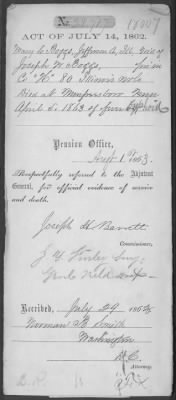 18007
ACT OF JULY 14, 1862.
Mary C. Boggs, Jefferson Co, Ill, Wid of
Joseph M Boggs,
C "H" 80 Illinois Vols
Died at Murfreesboro Tenn
April 6, 1863 of
Pension Office,
Aug 1, 1863.
Respectfully referred to the Adjutant
General, for official evidence of service
and death.
Joseph H Barrett
Commissioner,
Received, July 29, 186
Norman B Smith
Washington
D.C.
Attorney.